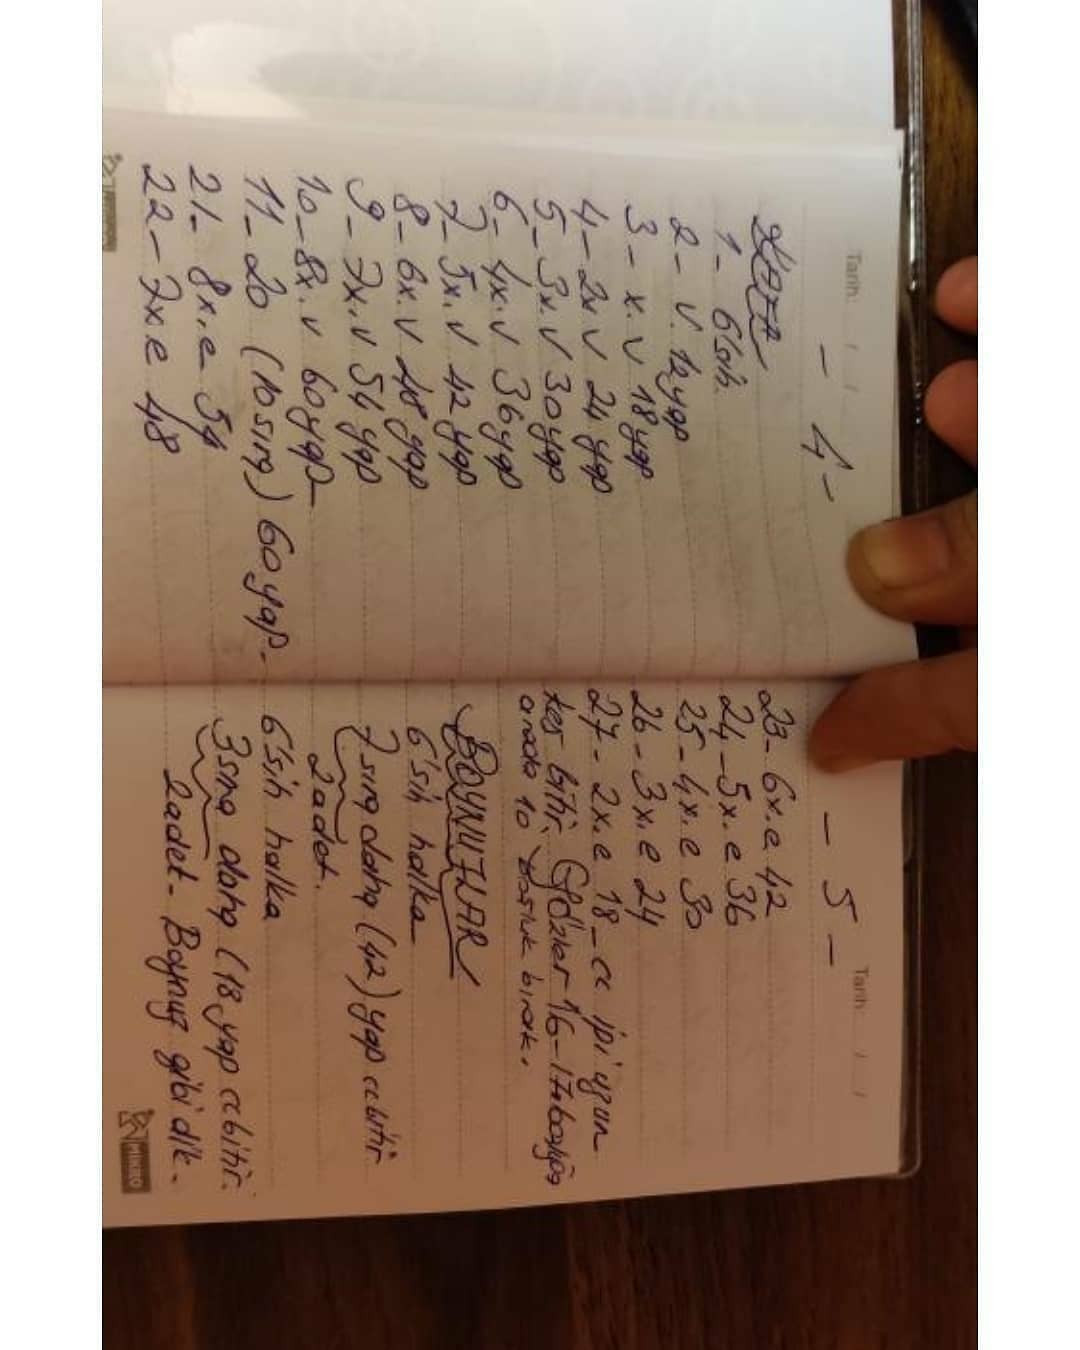 Tarih: / /
- 4 -
KAFA
1- 6 sih.
2- v. 12 yap
3- x.v 18 yap
4- 2x v 24 yap
5- 3x.v 30 yap
6- 4x.v 36 yap
7- 5x.v 42 yap
8- 6x.v 48 yap
9- 7x.v 54 yap
10- 8x.v 60 yap
11- 20 (10 sıra) 60 yap-
21- 8x.e 54
22- 7x.e 48
Tarih: / /
- 5 -
23- 6x.e 42
24- 5x.e 36
25- 4x.e 30
26- 3x.e 24
27- 2x.e 18- cc ipi uzun
kes bitir. Gözler 16-17
arada 10 boşluk bırak.
BOYNUZLAR
6 sih halka
7 sıra daha (42) yap cc bitir
2 adet.
6 sih halka
3 sıra daha (18 yap cc bitir.
2 adet- Boynuz gibi dik-
MIKRO